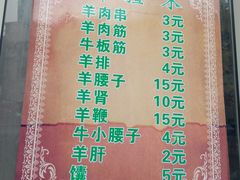 羊肉串 3元
羊肉筋 3元
牛板筋 3元
羊排 4元
羊腰子 15元
羊肾 10元
羊鞭 15元
牛小腰子 4元
羊肝 2元
馕 5元